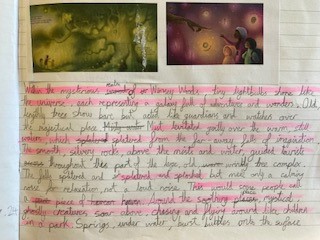 Within the mysterious eerie or Warney Woods, tiny lightbulbs shone like
the universe, each representing a galaxy full of adventure and wonders. Old,
lengthy trees show bare but acted like guardians and watches over
the magestical place. Mist levitated eerily over the warm, still
water, which splattered from the far-away falls of imagination
The smooth, silvery rocks above the mists and water guided tourists
throughout this part of the large old woody tree complex.
The falls splittered and splattered and splashed but made only a calming
noise for relaxation, not a loud noise. This would some people call
a piece of heaven. Around the soothing place, mystical
ghostly creatures, soar above, chasing and flying around like children
in a park. Springs under water burst bubbles onto the surface